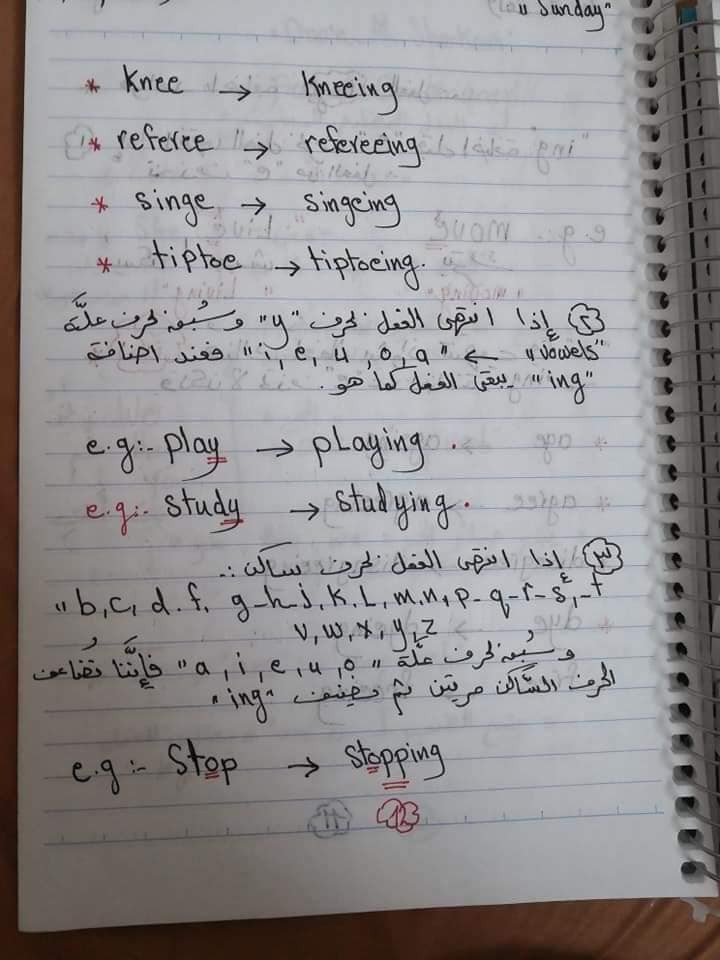 "Sunday"
* Knee → Kneeing
* referee → refereeing
* singe → singeing
* tiptoe → tiptoeing.
(٢) إذا انتهى الفعل بحرف "y" وسُبق بحرف علَّة
"vowels" ← "i, e, u, o, a" فعند اضافة
"ing" يبقى الفعل كما هو.
e.g:- play → pLaying.
e.g:- study → studying.
(٣) إذا انتهى الفعل بحرف ساكن :.
"b, c, d. f, g-h-j, k, L, m, n, p- q- r- s, -t
v, w, x, y, z
وسُبق بحرف علَّة "a, i, e, u, o" فإنَّنا نُضاعف
الحرف السَّاكن مرتين ثم نضيف "ing"
e.g:- Stop → stopping
12 11